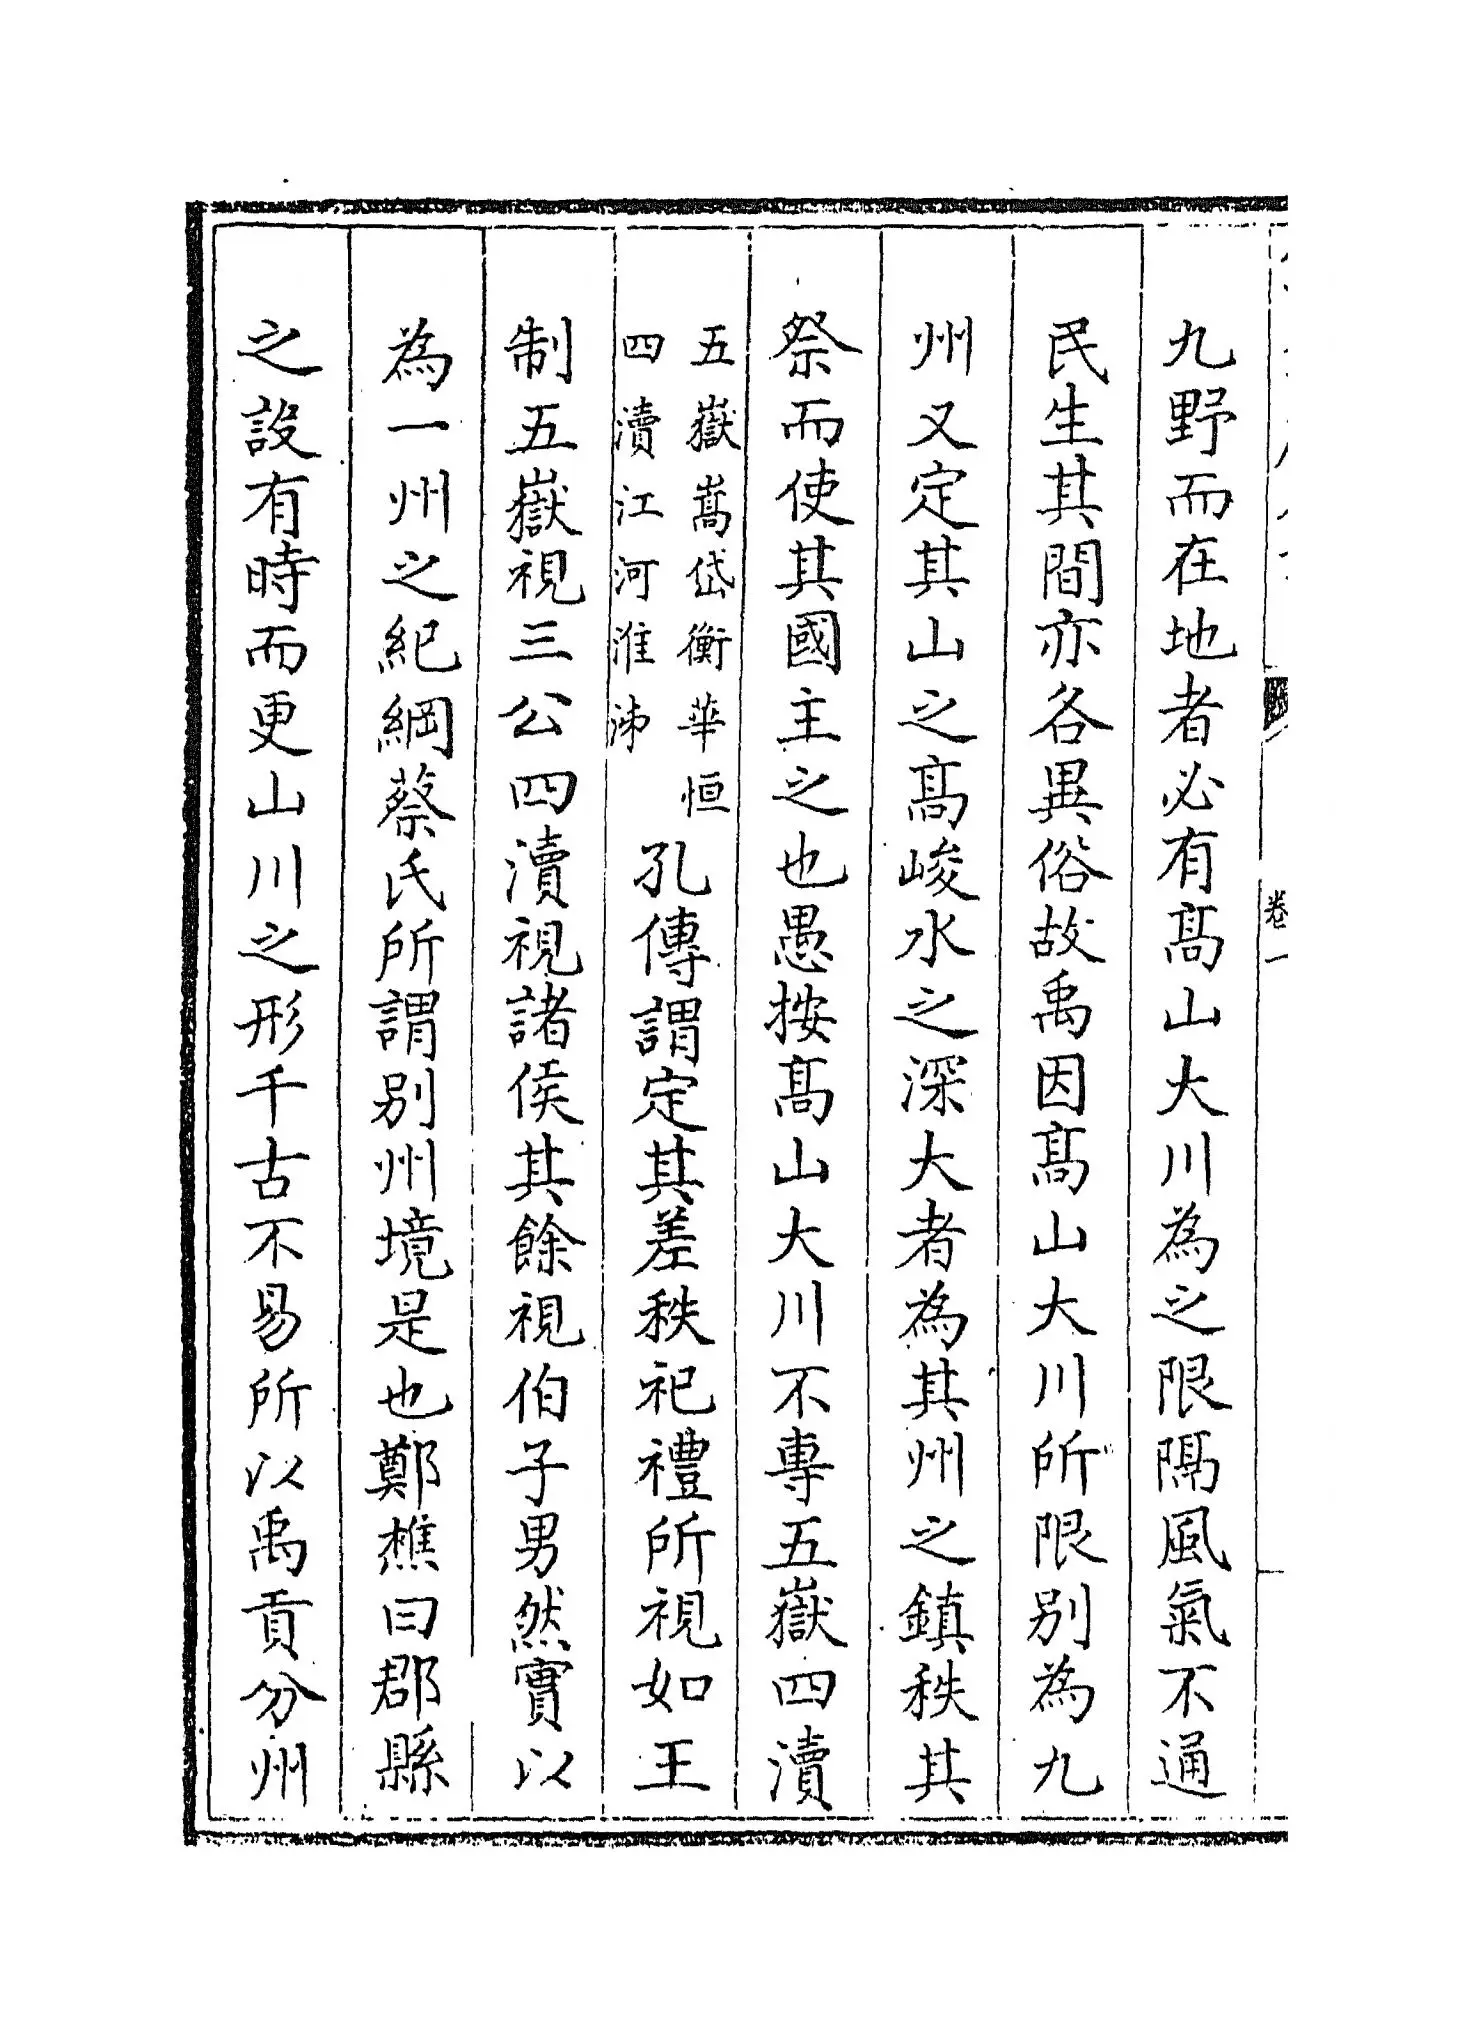 九野而在地者必有髙山大川為之限隔風氣不通
民生其間亦各異俗故禹因髙山大川所限别為九
州又定其山之髙峻水之深大者為其州之鎮秩其
祭而使其國主之也愚按髙山大川不專五嶽四瀆
五嶽嵩岱衡華恒
四瀆江河淮泲
孔傳謂定其差秩祀禮所視如王
制五嶽視三公四瀆視諸侯其餘視伯子男然實以
為一州之紀綱蔡氏所謂别州境是也鄭樵曰郡縣
之設有時而更山川之形千古不易所以禹貢分州
卷一